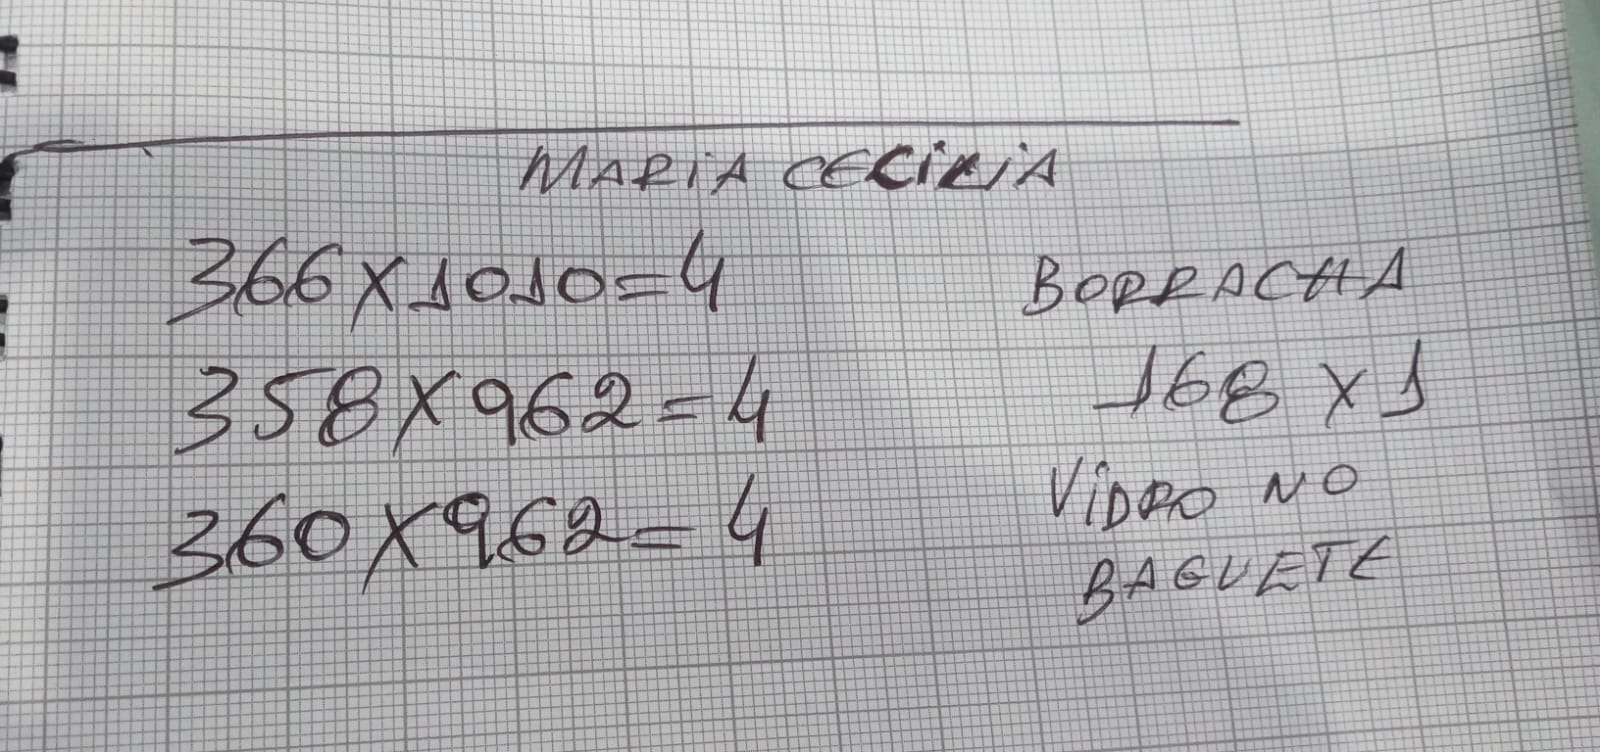 MARIA CECILIA
366X1010=4
358X962=4
360X962=4
BORRACHA
168 X 1
VIDRO NO
BAGUETE